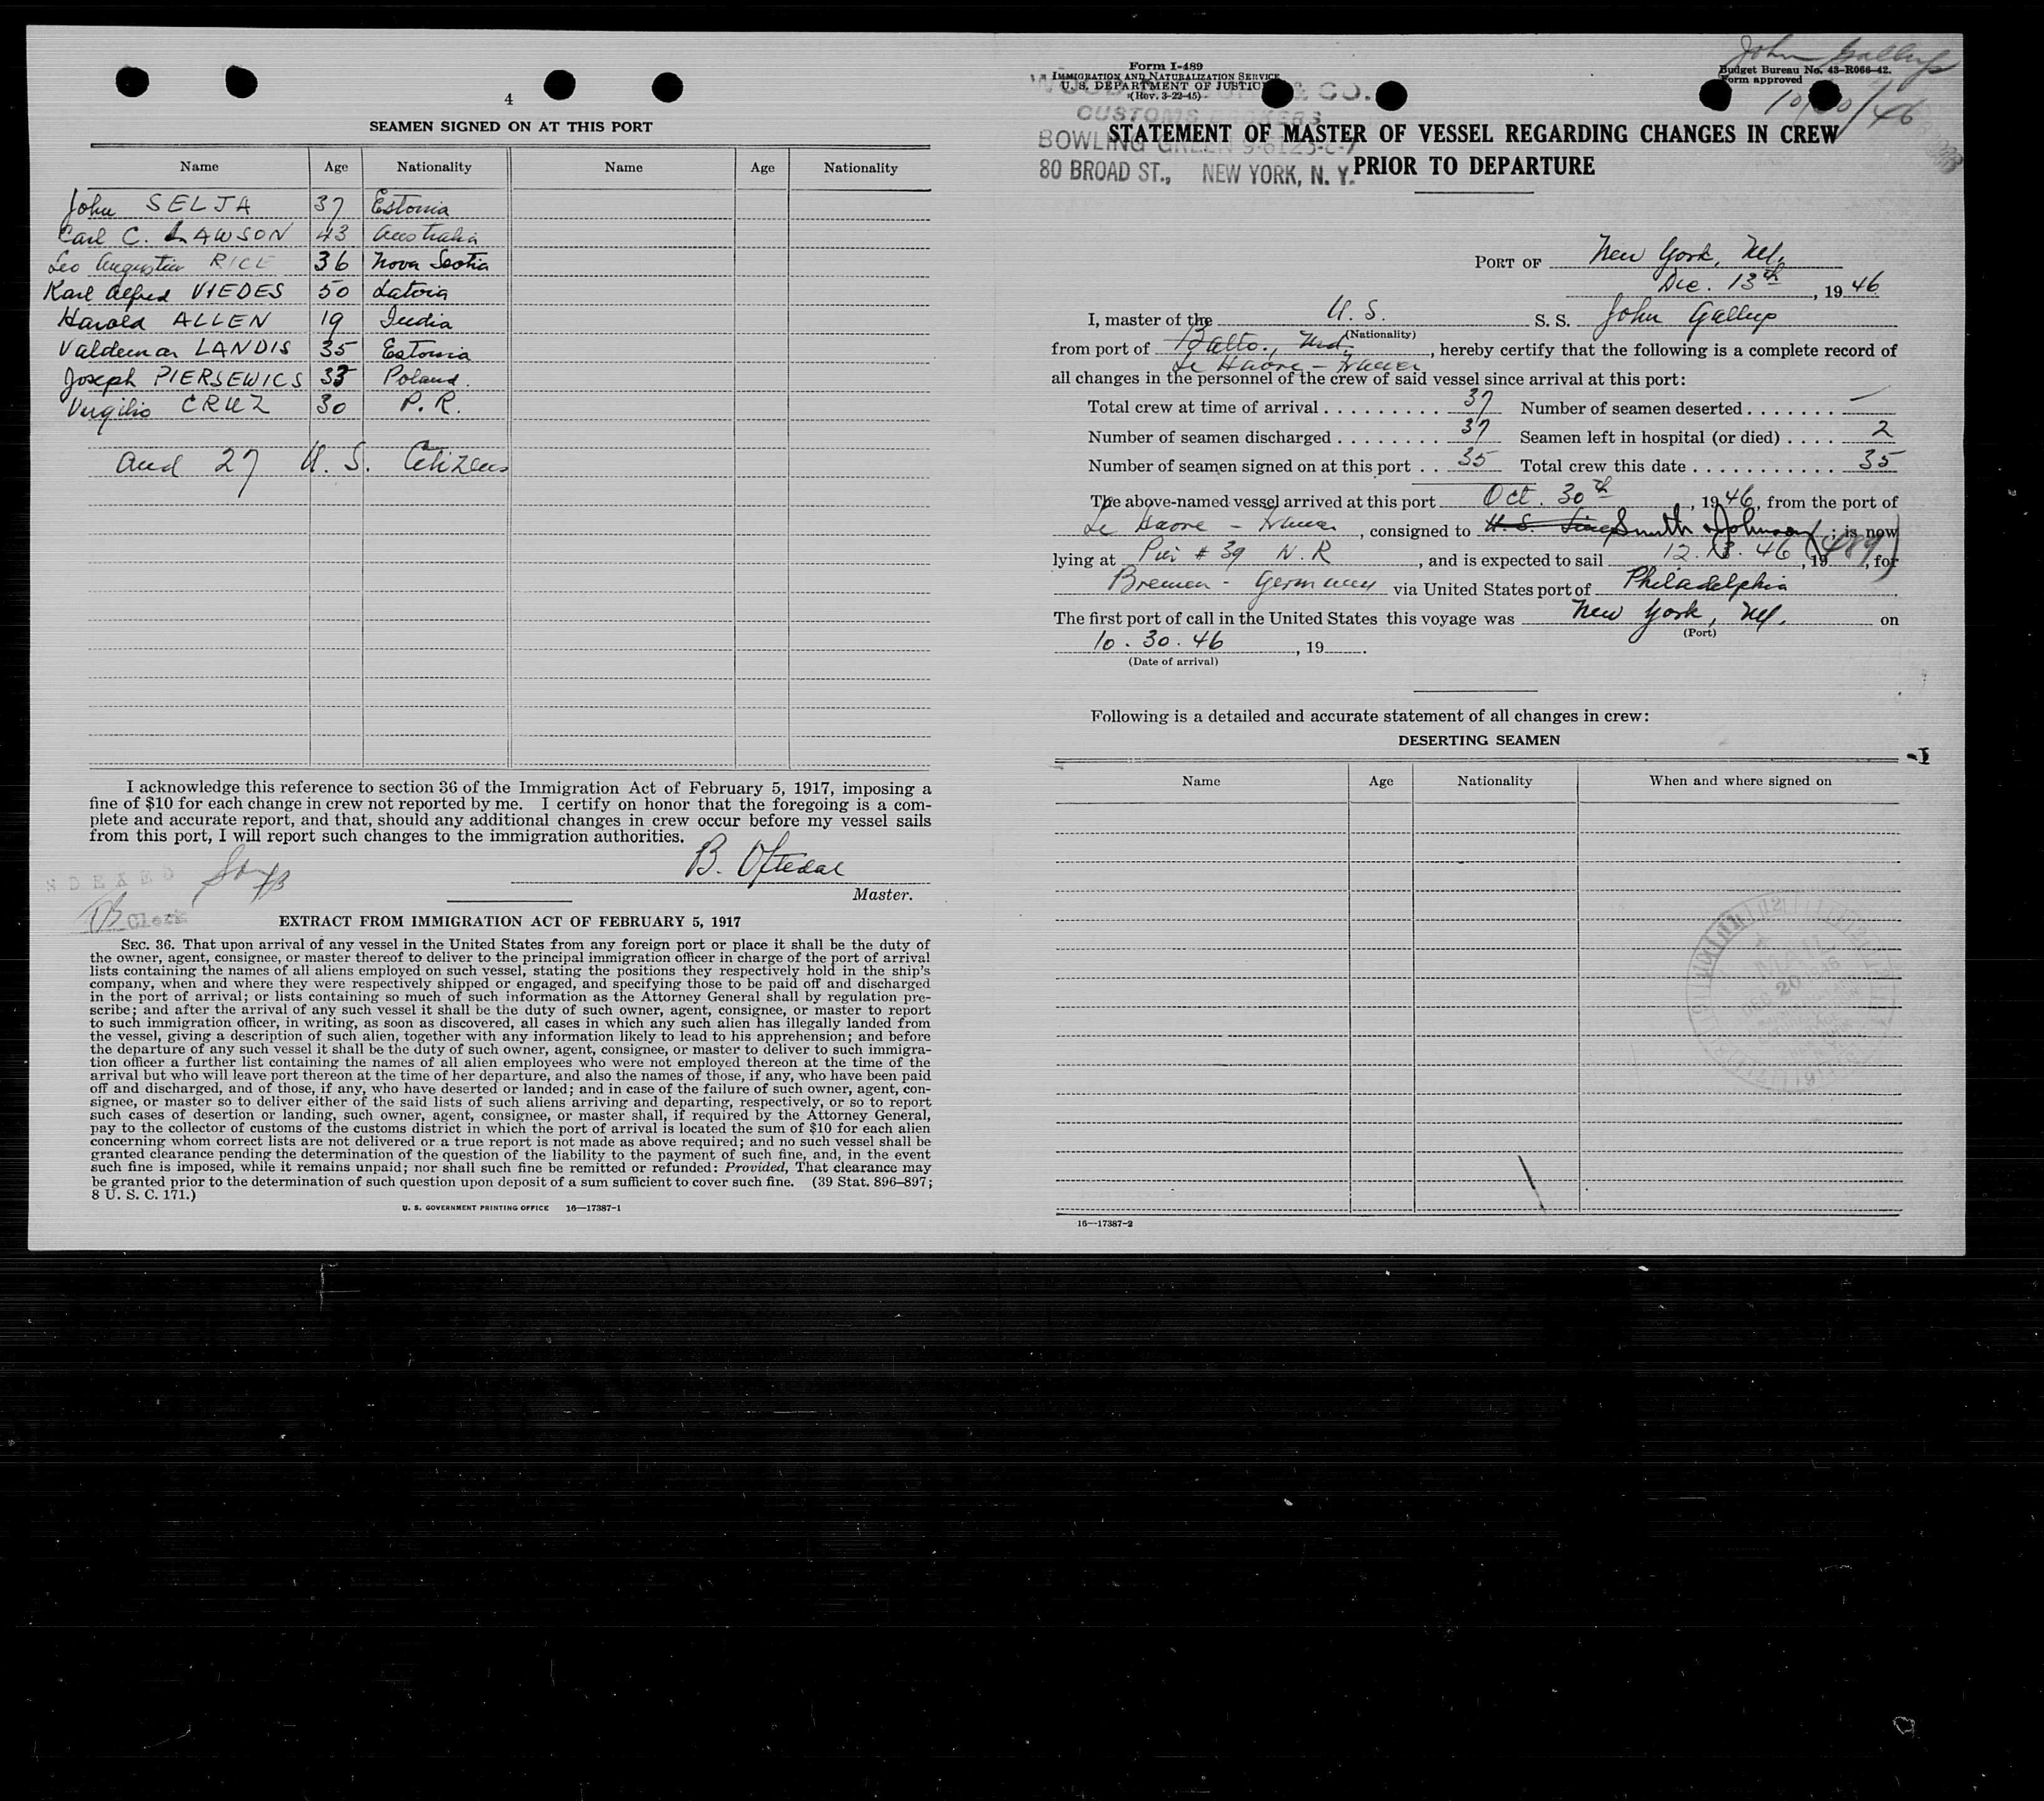 4
SEAMEN SIGNED ON AT THIS PORT
Name Age Nationality Name Age Nationality
John SELJA 37 Estonia
Carl C. LAWSON 43 Australia
Leo Augustin RICE 36 Nova Scotia
Karl Alfred VIEDES 50 Latvia
Harold ALLEN 19 India
Valdemar LANDIS 35 Estonia
Joseph PIERSEWICS 33 Poland.
Virgilio CRUZ 30 P. R.
and 27 U. S. Citizens
I acknowledge this reference to section 36 of the Immigration Act of February 5, 1917, imposing a
fine of $10 for each change in crew not reported by me. I certify on honor that the foregoing is a com-
plete and accurate report, and that, should any additional changes in crew occur before my vessel sails
from this port, I will report such changes to the immigration authorities.
B. Oftedal
Master.
Clerk
EXTRACT FROM IMMIGRATION ACT OF FEBRUARY 5, 1917
SEC. 36. That upon arrival of any vessel in the United States from any foreign port or place it shall be the duty of
the owner, agent, consignee, or master thereof to deliver to the principal immigration officer in charge of the port of arrival
lists containing the names of all aliens employed on such vessel, stating the positions they respectively hold in the ship's
company, when and where they were respectively shipped or engaged, and specifying those to be paid off and discharged
in the port of arrival; or lists containing so much of such information as the Attorney General shall by regulation pre-
scribe; and after the arrival of any such vessel it shall be the duty of such owner, agent, consignee, or master to report
to such immigration officer, in writing, as soon as discovered, all cases in which any such alien has illegally landed from
the vessel, giving a description of such alien, together with any information likely to lead to his apprehension; and before
the departure of any such vessel it shall be the duty of such owner, agent, consignee, or master to deliver to such immigra-
tion officer a further list containing the names of all alien employees who were not employed thereon at the time of the
arrival but who will leave port thereon at the time of her departure, and also the names of those, if any, who have been paid
off and discharged, and of those, if any, who have deserted or landed; and in case of the failure of such owner, agent, con-
signee, or master so to deliver either of the said lists of such aliens arriving and departing, respectively, or so to report
such cases of desertion or landing, such owner, agent, consignee, or master shall, if required by the Attorney General,
pay to the collector of customs of the customs district in which the port of arrival is located the sum of $10 for each alien
concerning whom correct lists are not delivered or a true report is not made as above required; and no such vessel shall be
granted clearance pending the determination of the question of the liability to the payment of such fine, and, in the event
such fine is imposed, while it remains unpaid; nor shall such fine be remitted or refunded: Provided, That clearance may
be granted prior to the determination of such question upon deposit of a sum sufficient to cover such fine. (39 Stat. 896–897;
8 U. S. C. 171.)
U. S. GOVERNMENT PRINTING OFFICE 16—17387-1
John Gallup
Form I-489
IMMIGRATION AND NATURALIZATION SERVICE
U. S. DEPARTMENT OF JUSTICE
(Rev. 3-22-45)
Budget Bureau No. 43-R066-42.
Form approved
10/30/46
& CO.
CUSTOMS BROKERS
BOWLING GREEN
80 BROAD ST., NEW YORK, N. Y.
STATEMENT OF MASTER OF VESSEL REGARDING CHANGES IN CREW
PRIOR TO DEPARTURE
PORT OF New York, NY.
Dec. 13th, 19 46
I, master of the U. S. S. S. John Gallup
(Nationality)
from port of Balto., Md., hereby certify that the following is a complete record of
Le Havre - France
all changes in the personnel of the crew of said vessel since arrival at this port:
Total crew at time of arrival 37 Number of seamen deserted —
Number of seamen discharged 37 Seamen left in hospital (or died) 2
Number of seamen signed on at this port 35 Total crew this date 35
The above-named vessel arrived at this port Oct. 30th, 1946, from the port of
Le Havre - France, consigned to U. S. Lines Smith & Johnson; is now
lying at Pier # 39 N. R, and is expected to sail 12. 13. 46, 19 (489), for
Bremen - Germany via United States port of Philadelphia
The first port of call in the United States this voyage was New York, NY. on
(Port)
10. 30. 46, 19
(Date of arrival)
Following is a detailed and accurate statement of all changes in crew:
DESERTING SEAMEN
Name Age Nationality When and where signed on
MAIL
DEC 20 1946
16—17387-2